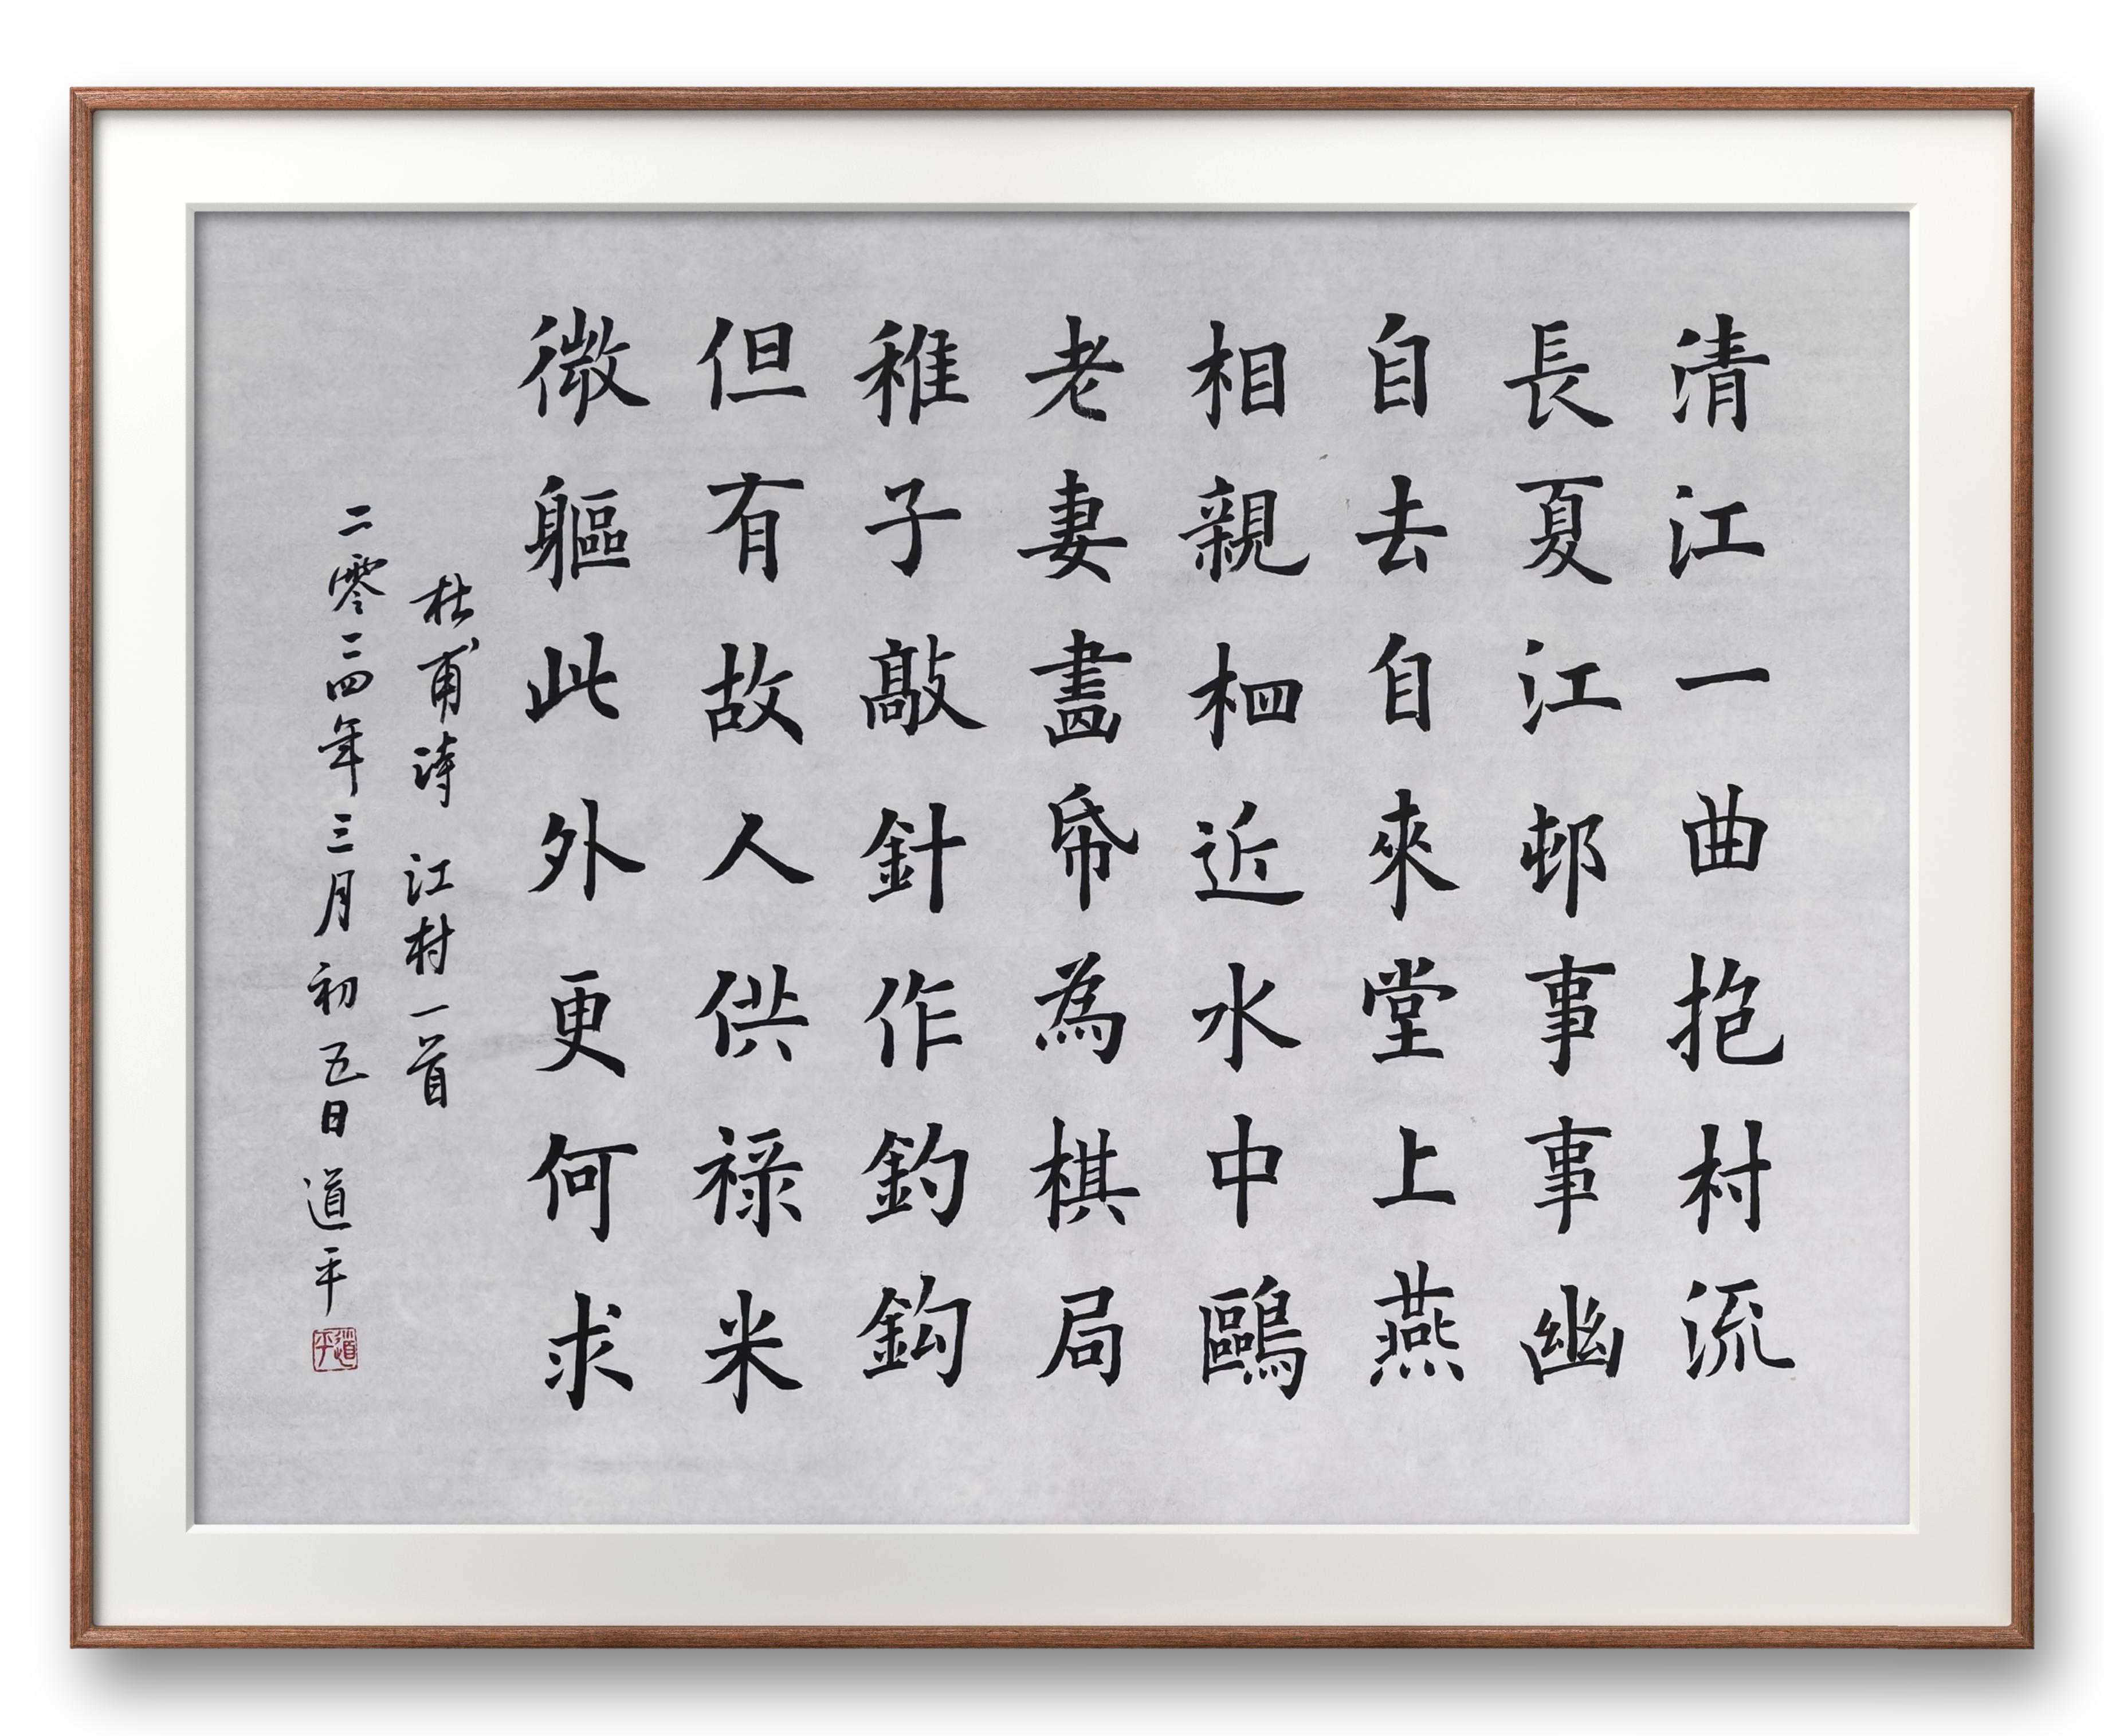 清江一曲抱村流
長夏江邨事事幽
自去自來堂上燕
相親相近水中鷗
老妻畫帋為棋局
稚子敲針作釣鈎
但有故人供祿米
微軀此外更何求
杜甫詩 江村一首
二零二四年三月初五日 道平
道平